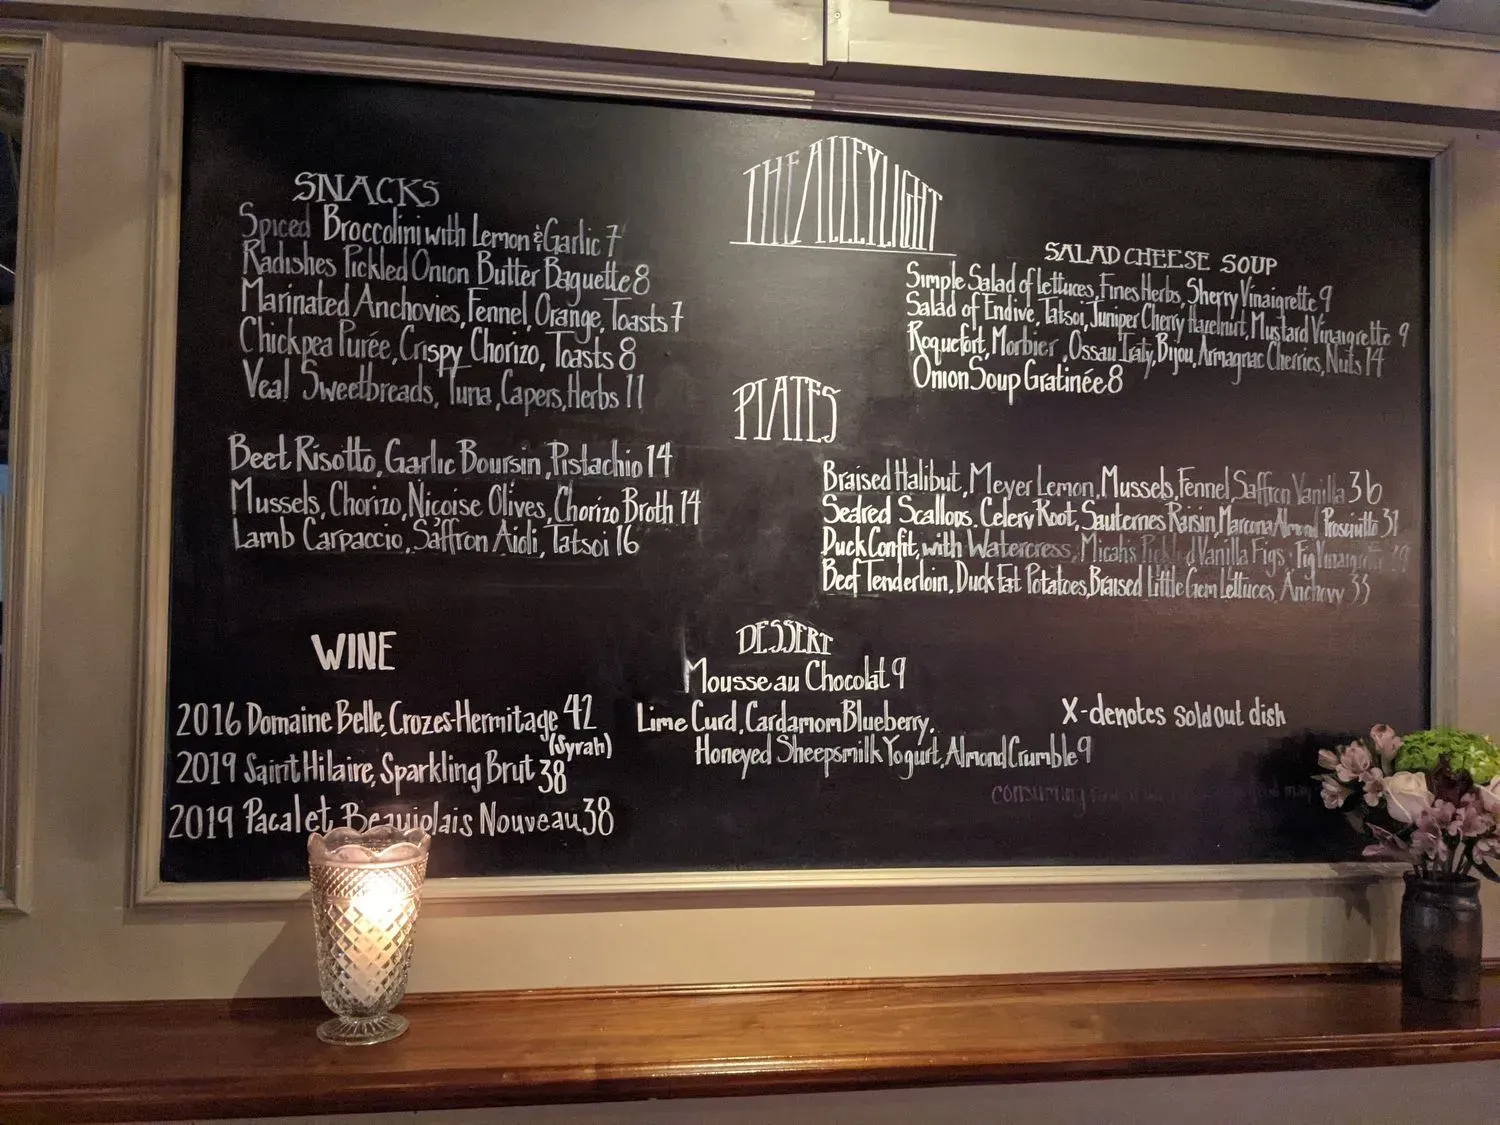 THE ALLEY LIGHT
SNACKS
Spiced Broccolini with Lemon & Garlic 7
Radishes Pickled Onion Butter Baguette 8
Marinated Anchovies, Fennel, Orange, Toasts 7
Chickpea Purée, Crispy Chorizo, Toasts 8
Veal Sweetbreads, Tuna, Capers, Herbs 11
SALAD CHEESE SOUP
Simple Salad of lettuces, Fines Herbs, Sherry Vinaigrette 9
Salad of Endive, Tatsoi, Juniper Cherry Hazelnut, Mustard Vinaigrette 9
Roquefort, Morbier, Ossau Iraty, Bijou, Armagnac Cherries, Nuts 14
Onion Soup Gratinée 8
PLATES
Beet Risotto, Garlic Boursin, Pistachio 14
Mussels, Chorizo, Niçoise Olives, Chorizo Broth 14
Lamb Carpaccio, Saffron Aioli, Tatsoi 16
Braised Halibut, Meyer Lemon, Mussels, Fennel Saffron Vanilla 36
Seared Scallops, Celery Root, Sauternes Raisin, Marcona Almond Prosciutto
Duck Confit, with Watercress, Micah's Pickled Vanilla Figs, Fig Vinaigrette
Beef Tenderloin, Duck Fat Potatoes, Braised Little Gem Lettuces, Anchovy 33
WINE
2016 Domaine Belle, Crozes-Hermitage 42
(Syrah)
2019 Saint Hilaire, Sparkling Brut 38
2019 Pacalet Beaujolais Nouveau 38
DESSERT
Mousse au Chocolat 9
Lime Curd, Cardamom Blueberry,
Honeyed Sheepsmilk Yogurt, Almond Crumble 9
X-denotes Sold Out dish
consuming